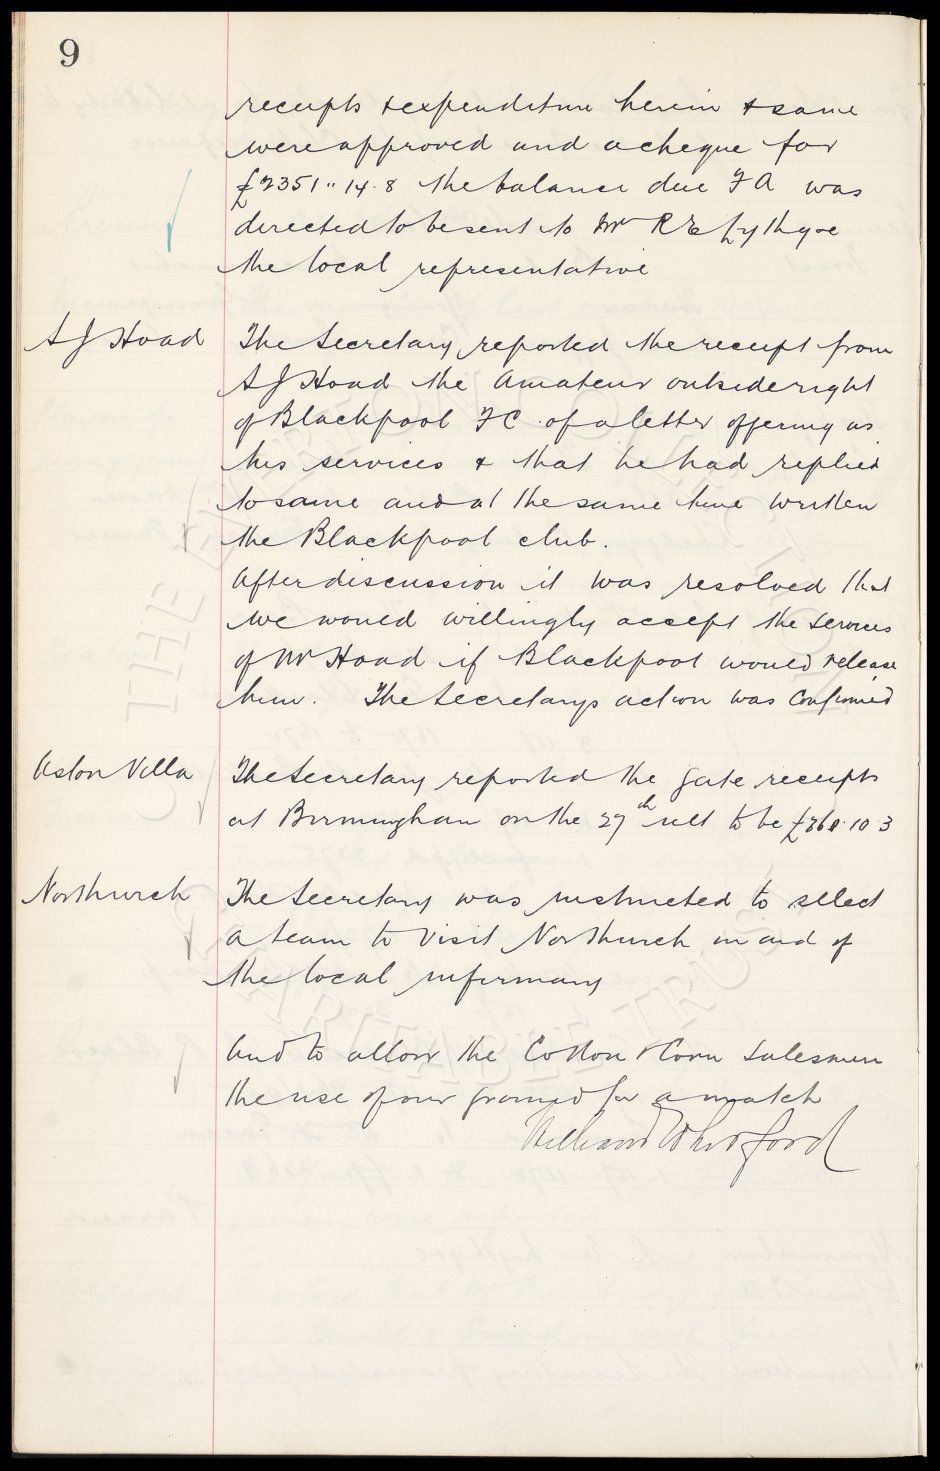 9
receipts & expenditure herein & same
were approved and a cheque for
£2351 " 14 . 8 the balance due FA was
directed to be sent to Mr R E Lythgoe
the local representative
S J Hoad The Secretary reported the receipt from
S J Hoad the Amateur outside right
of Blackpool FC of a letter offering us
his services & that he had replied
to same and at the same time written
the Blackpool club.
After discussion it was resolved that
we would willingly accept the services
of Mr Hoad if Blackpool would release
him. The Secretarys action was confirmed
Aston Villa The Secretary reported the gate receipts
at Birmingham on the 27th ult to be 10 . 3
Northwich The Secretary was instructed to select
a team to visit Northwich in aid of
the local infirmary
And to allow the Cotton & Corn Salesmen
the use of our ground for a match
William